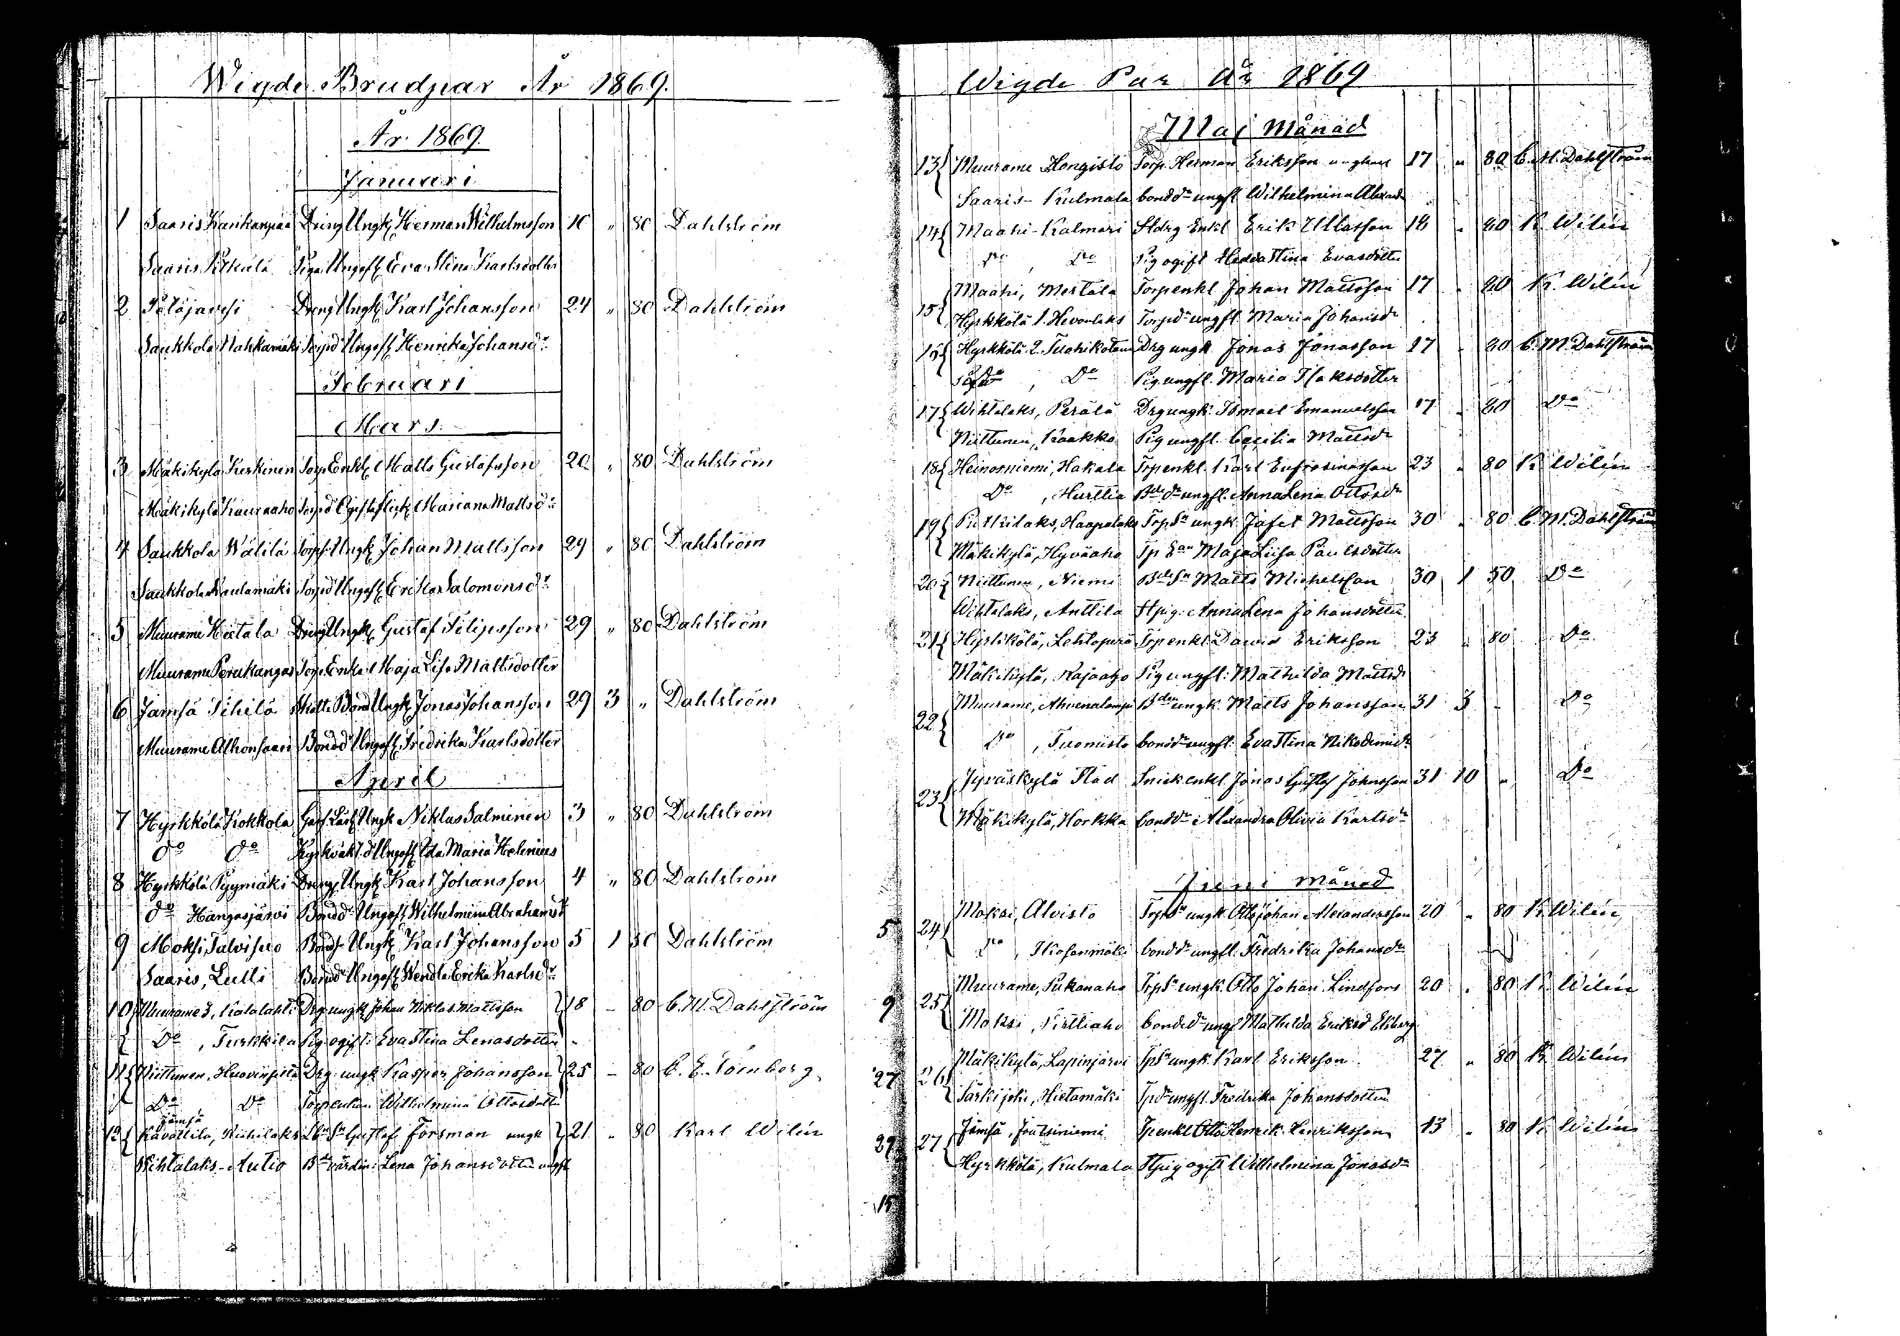 Wigde Brudpar År 1869.
År 1869.
Januari
1 Saaris Kankanpää Dräng Ungk. Herman Wilhelmsson 10 " 80 Dahlström
Saaris Pitkälä Piga Ungqf. Eva Stina Karlsdotter
2 Pätäjävesi Dräng Ungk. Karl Johansson 24 " 80 Dahlström
Saukkola Nahkamäki Torpd. Ungqf. Henrika Johansdr
Februari
Mars.
3 Mäkikylä Keskinen Torp. Enkl. Matts Gustafsson 20 " 80 Dahlström
Mäkikylä Kauraaho Mariana Mattsdr
4 Saukkola Wälilä Torps. Ungk. Johan Mattsson 29 " 80 Dahlström
Saukkola Rautamäki Torpd Ungqf. Erika Salomonsdr
5 Muurame Hatala Dräng Ungk. Gustaf Filipsson 29 " 80 Dahlström
Muurame Perukangas Torp. Enka Maja Lisa Mattsdotter
6 Jämsä Pihilä Bond Ungk. Jonas Johansson 29 3 " Dahlström
Muurame Alhonsaari Bondd Ungqf. Fredrika Karlsdotter
April
7 Hyrkkölä Kokkola Ungk Niklas Salminen 3 " 80 Dahlström
Do Do Kyrkväkt. d Ungqf. Ida Maria Helenius
8 Hyrkkölä Pyymäki Dräng Ungk. Karl Johansson 4 " 80 Dahlström
Do Hangasjärvi Bondd Ungqf. Wilhelmina Abrahamsd
9 Moksi Talvisuo Bonds. Ungk. Karl Johansson 5 1 50 Dahlström
Saaris, Lulli Bondd Ungqf. Wendla Erika Karlsdr
10 Muurame 3, Katalahti Drg ungk Johan Niklas Mattsson 18 – 80 C. M. Dahlström
Do, Turkkila Pig ogift: Eva Stina Lenasdotter
11 Niittunen, Huovinjoki Drg. ungk Kasper Johansson 25 – 80 C. E. Törnberg
Do Do Torpenkan Wilhelmina Ottosdotter
Jämsä
12 Kavattila, Gustaf Forsman ungk 21 " 80 Karl Wilén
Wihtalaks – Autio Lena Johansdotter ungfl
Wigde Par år 1869
Maj Månad
13 Muurame Kongisto Torp. Herman Eriksson ungkarl 17 " 80 C. M. Dahlström
Saaris – Kulmala bondd ungfl Wilhelmina
14 Maahi – Kalmari Enkl Erik Ullasson 18 " 80 K. Wilén
Do, Do Pig ogift Hedda Stina Evasdotter
15 Maahi, Mertala Torpenkl Johan Mattsson 17 " 80 K. Wilén
Hyrkkölä 1. Hevonlaks Torpd ungfl. Maria Johansdr
16 Hyrkkölä 2. Drg ungk Jonas Jonasson 17 " 80 C. M. Dahlström
Do, Do Pig ungfl. Maria Isaksdotter
17 Wihtalaks, Perälä Drg ungk. Ismael Emanuelsson 17 " 80 Do
Niittunen, Kaakko Pig ungfl. Cecilia Mattsdr
18 Heinoniemi, Hakala Trpenkl. Karl Eufrosinasson 23 " 80 K Wilén
Do, Hurttia ungfl. Anna Lena Ottosdr
19 Putkilaks, Haapalaks Trps ungk. Jafet Mattsson 30 " 80 C. M. Dahlström
Mäkikylä, Hyväaho Maja Lisa Paulsdotter
20 Niittunen, Niemi Matts Michelsson 30 1 50 Do
Wihtalaks, Anttila Anna Lena Johansdotter
21 Hyrkkölä, Lehtoperä Trpenkl. David Eriksson 23 " 80 Do
Mäkikylä, Rajaaho Pig ungfl. Mathilda Mattsdr
22 Muurame, Ahvenalampi ungk. Matts Johansson 31 3 – Do
Do, Tuomisto bondd ungfl. Eva Stina Nikodemidr
23 Jyväskylä Stad Snick enkl Jonas Gustaf Johansson 31 10 " Do
Mäkikylä, Horkka bondd Alexandra Olivia Karlsdr
Juni Månad
5 24 Moksi, Alvisto Trps ungk. Otto Johan Alexandersson 20 " 80 K. Wilén
Do, Ikosenmäki bondd ungfl. Fredrika Johansdr
9 25 Muurame, Pukanaho Trps ungk. Otto Johan Lindfors 20 " 80 K. Wilén
Moksi, Pirttiaho bondd ungf Mathilda Eriksd Ekberg
27 26 Mäkikylä, Lapinjärvi Tps ungk. Karl Eriksson 27 " 80 K. Wilén
Särkijoki, Hietamäki Tpd ungfl. Fredrika Johansdotter
29 27 Jämsä, Juutsiniemi Tpenkl. Otto Henrik Henriksson 13 " 80 K. Wilén
Hyrkkölä, Kulmala ogift Wilhelmina Jonasdr
15